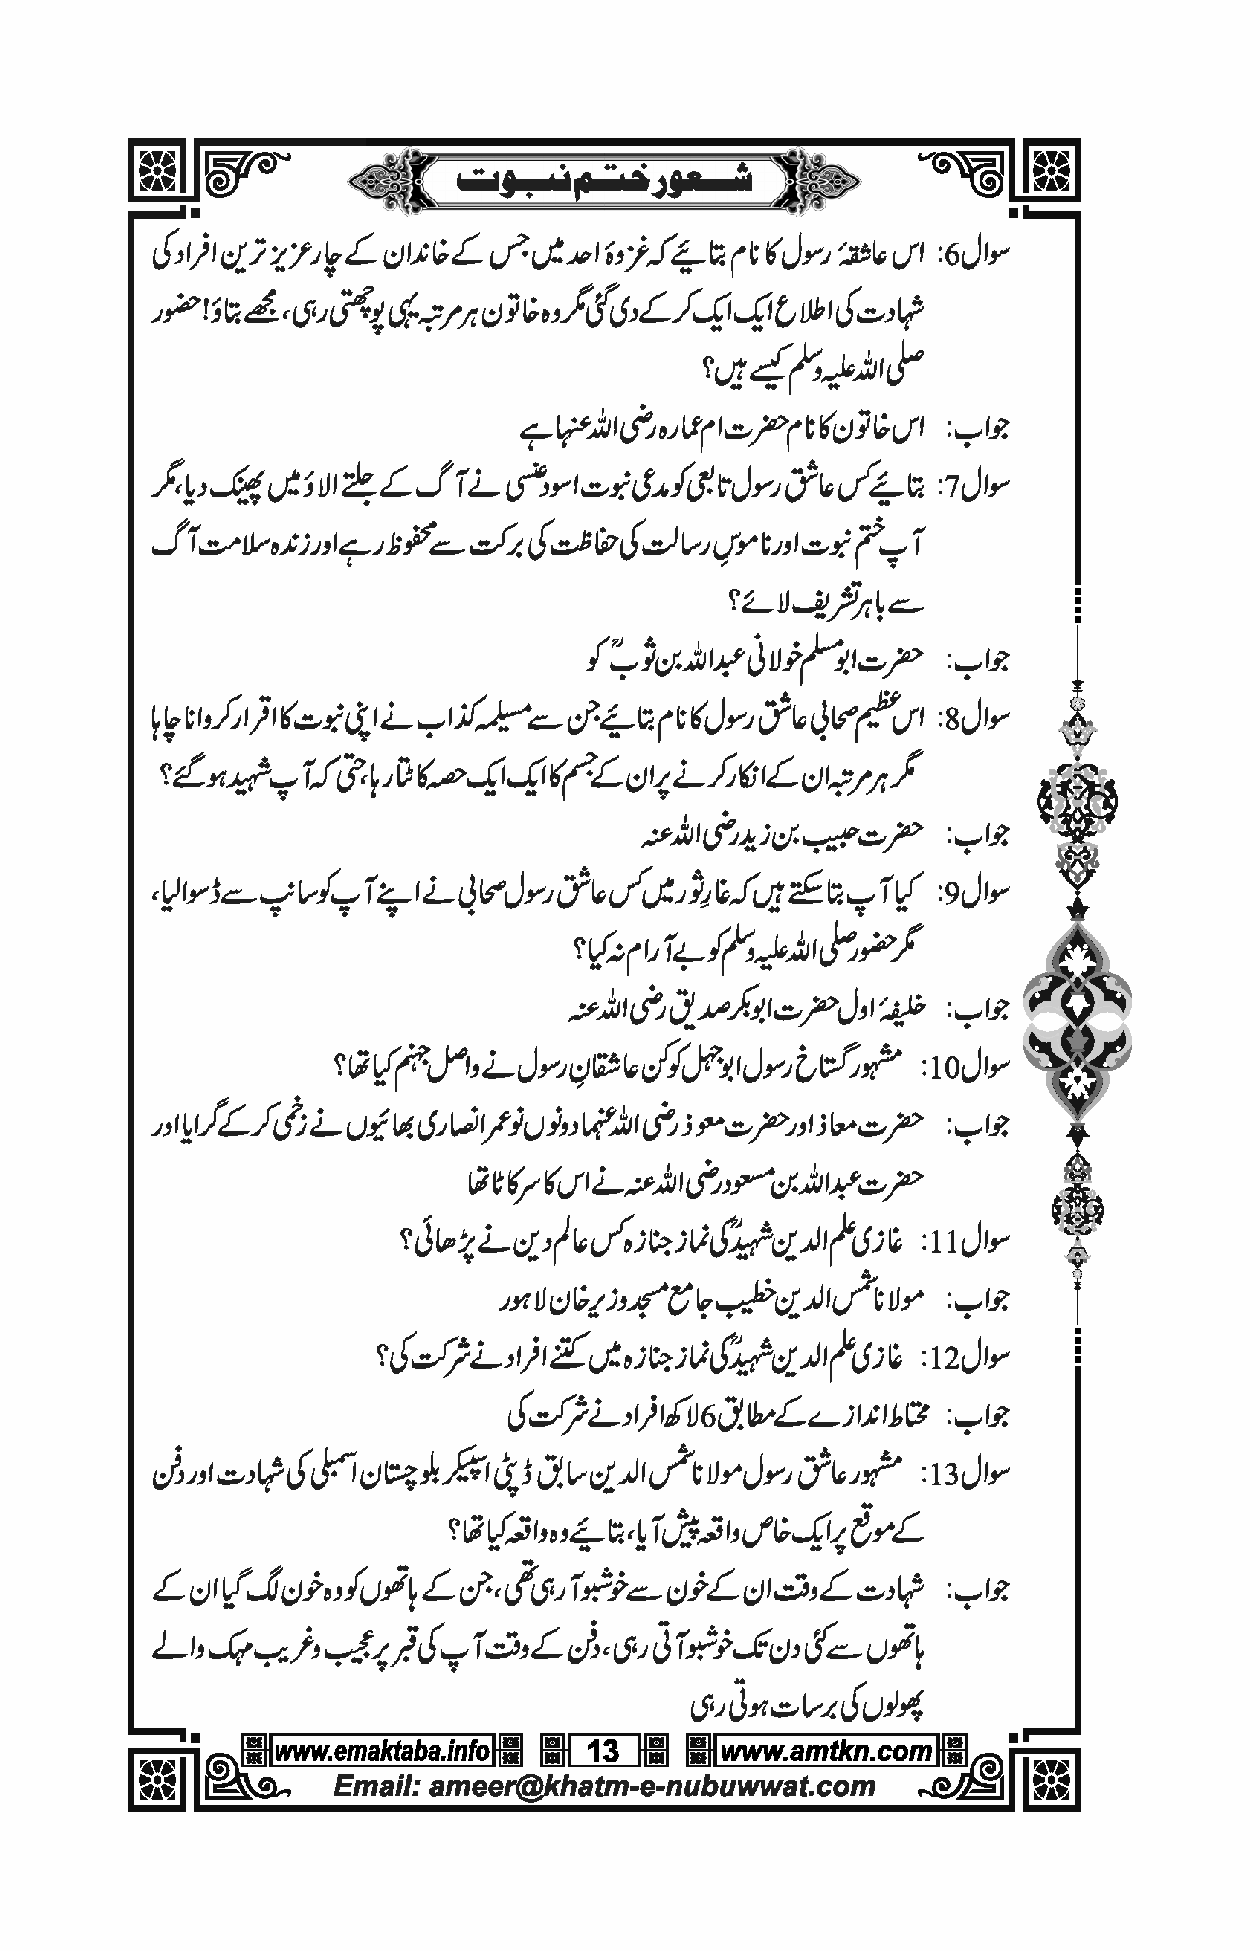 شعور ختم نبوت
سوال6: اس عاشقۂ رسول کا نام بتائیے کہ غزوۂ احد میں جس کے خاندان کے چار عزیز ترین افراد کی
شہادت کی اطلاع ایک ایک کر کے دی گئی مگر وہ خاتون ہر مرتبہ یہی پوچھتی رہی، مجھے بتاؤ! حضور
صلی اللہ علیہ وسلم کیسے ہیں؟
جواب: اس خاتون کا نام حضرت ام عمارہ رضی اللہ عنہا ہے
سوال7: بتائیے کس عاشق رسول تابعی کو مدعی نبوت اسود عنسی نے آگ کے جلتے الاؤ میں پھینک دیا، مگر
آپ ختم نبوت اور ناموسِ رسالت کی حفاظت کی برکت سے محفوظ رہے اور زندہ سلامت آگ
سے باہر تشریف لائے؟
جواب: حضرت ابو مسلم خولانی عبداللہ بن ثوبؒ کو
سوال8: اس عظیم صحابی عاشق رسول کا نام بتائیے جن سے مسیلمہ کذاب نے اپنی نبوت کا اقرار کروانا چاہا
مگر ہر مرتبہ ان کے انکار کرنے پر ان کے جسم کا ایک ایک حصہ کاٹتا رہا، حتیٰ کہ آپ شہید ہو گئے؟
جواب: حضرت حبیب بن زید رضی اللہ عنہ
سوال9: کیا آپ بتا سکتے ہیں کہ غارِ ثور میں کس عاشق رسول صحابی نے اپنے آپ کو سانپ سے ڈسوا لیا،
مگر حضور صلی اللہ علیہ وسلم کو بے آرام نہ کیا؟
جواب: خلیفۂ اول حضرت ابوبکر صدیق رضی اللہ عنہ
سوال10: مشہور گستاخ رسول ابوجہل کو کن عاشقانِ رسول نے واصل جہنم کیا تھا؟
جواب: حضرت معاذ اور حضرت معوذ رضی اللہ عنہما دونوں نوعمر انصاری بھائیوں نے زخمی کر کے گرایا اور
حضرت عبداللہ بن مسعود رضی اللہ عنہ نے اس کا سر کاٹا تھا
سوال11: غازی علم الدین شہیدؒ کی نماز جنازہ کس عالم دین نے پڑھائی؟
جواب: مولانا شمس الدین خطیب جامع مسجد وزیر خان لاہور
سوال12: غازی علم الدین شہیدؒ کی نماز جنازہ میں کتنے افراد نے شرکت کی؟
جواب: محتاط اندازے کے مطابق 6 لاکھ افراد نے شرکت کی
سوال13: مشہور عاشق رسول مولانا شمس الدین سابق ڈپٹی اسپیکر بلوچستان اسمبلی کی شہادت اور دفن
کے موقع پر ایک خاص واقعہ پیش آیا، بتائیے وہ واقعہ کیا تھا؟
جواب: شہادت کے وقت ان کے خون سے خوشبو آ رہی تھی، جن کے ہاتھوں کو وہ خون لگ گیا ان کے
ہاتھوں سے کئی دن تک خوشبو آتی رہی، دفن کے وقت آپ کی قبر پر عجیب و غریب مہک والے
پھولوں کی برسات ہوتی رہی
www.emaktaba.info 13 www.amtkn.com
Email: ameer@khatm-e-nubuwwat.com